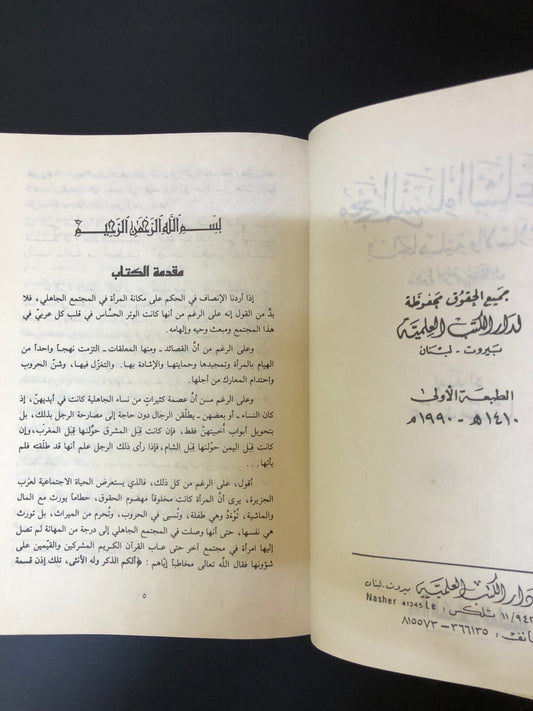 جميع الحقوق محفوظة
لدار الكتب العلمية
بيروت - لبنان
الطبعة الأولى
١٤١٠ هـ - ١٩٩٠ م
دار الكتب العلمية بيروت - لبنان
١١/٩٤٢ تلكس : Nasher 41245 Le
هاتف : ٣٦٦١٣٥ - ٨١٥٥٧٣
بسم الله الرحمن الرحيم
مقدمة الكتاب
إذا أردنا الإنصاف في الحكم على مكانة المرأة في المجتمع الجاهلي، فلا
بدَّ من القول إنه على الرغم من أنها كانت الوتر الحسَّاس في قلب كل عربيّ في
هذا المجتمع ومبعث وحيه وإلهامه.
وعلى الرغم من أنَّ القصائد ـ ومنها المعلقات ـ التزمت نهجاً واحداً من
الهيام بالمرأة وتمجيدها وحمايتها والإشادة بها.. والتغزّل فيها، وشنّ الحروب
واحتدام المعارك من أجلها.
وعلى الرغم مـن أنَّ عصمة كثيراتٍ من نساء الجاهلية كانت في أيديهنّ، إذ
كان النساء ـ أو بعضهن ـ يطلّقن الرجال دون حاجة إلى مصارحة الرجل بذلك، بل
بتحويل أبواب أخبيتهنّ فقط، فإن كانت قِبل المشرق حوّلنها قِبل المغرب، وإن
كانت قِبل اليمن حوّلنها قِبل الشام، فإذا رأى ذلك الرجل علم أنها قد طلّقته فلم
يأتها...
أقول، على الرغم من كل ذلك، فالذي يستعرض الحياة الاجتماعية لعرب
الجزيرة، يرى أنَّ المرأة كانت مخلوقاً مهضوم الحقوق، حطاماً يورث مع المال
والماشية، تُوءَدُ وهي طفلة، وتُسبى في الحروب، وتُحرم من الميراث، بل تورث
هي نفسها، حتى أنها وصلت في المجتمع الجاهلي إلى درجة من المهانة لم تصل
إليها امرأة في مجتمع آخر حتى عـاب القرآن الكريم المشركين والقيّمين على
شؤونها فقال الله تعالى مخاطباً إيّاهم : ﴿ألكم الذكر وله الأنثى، تلك إذن قسمة
٥